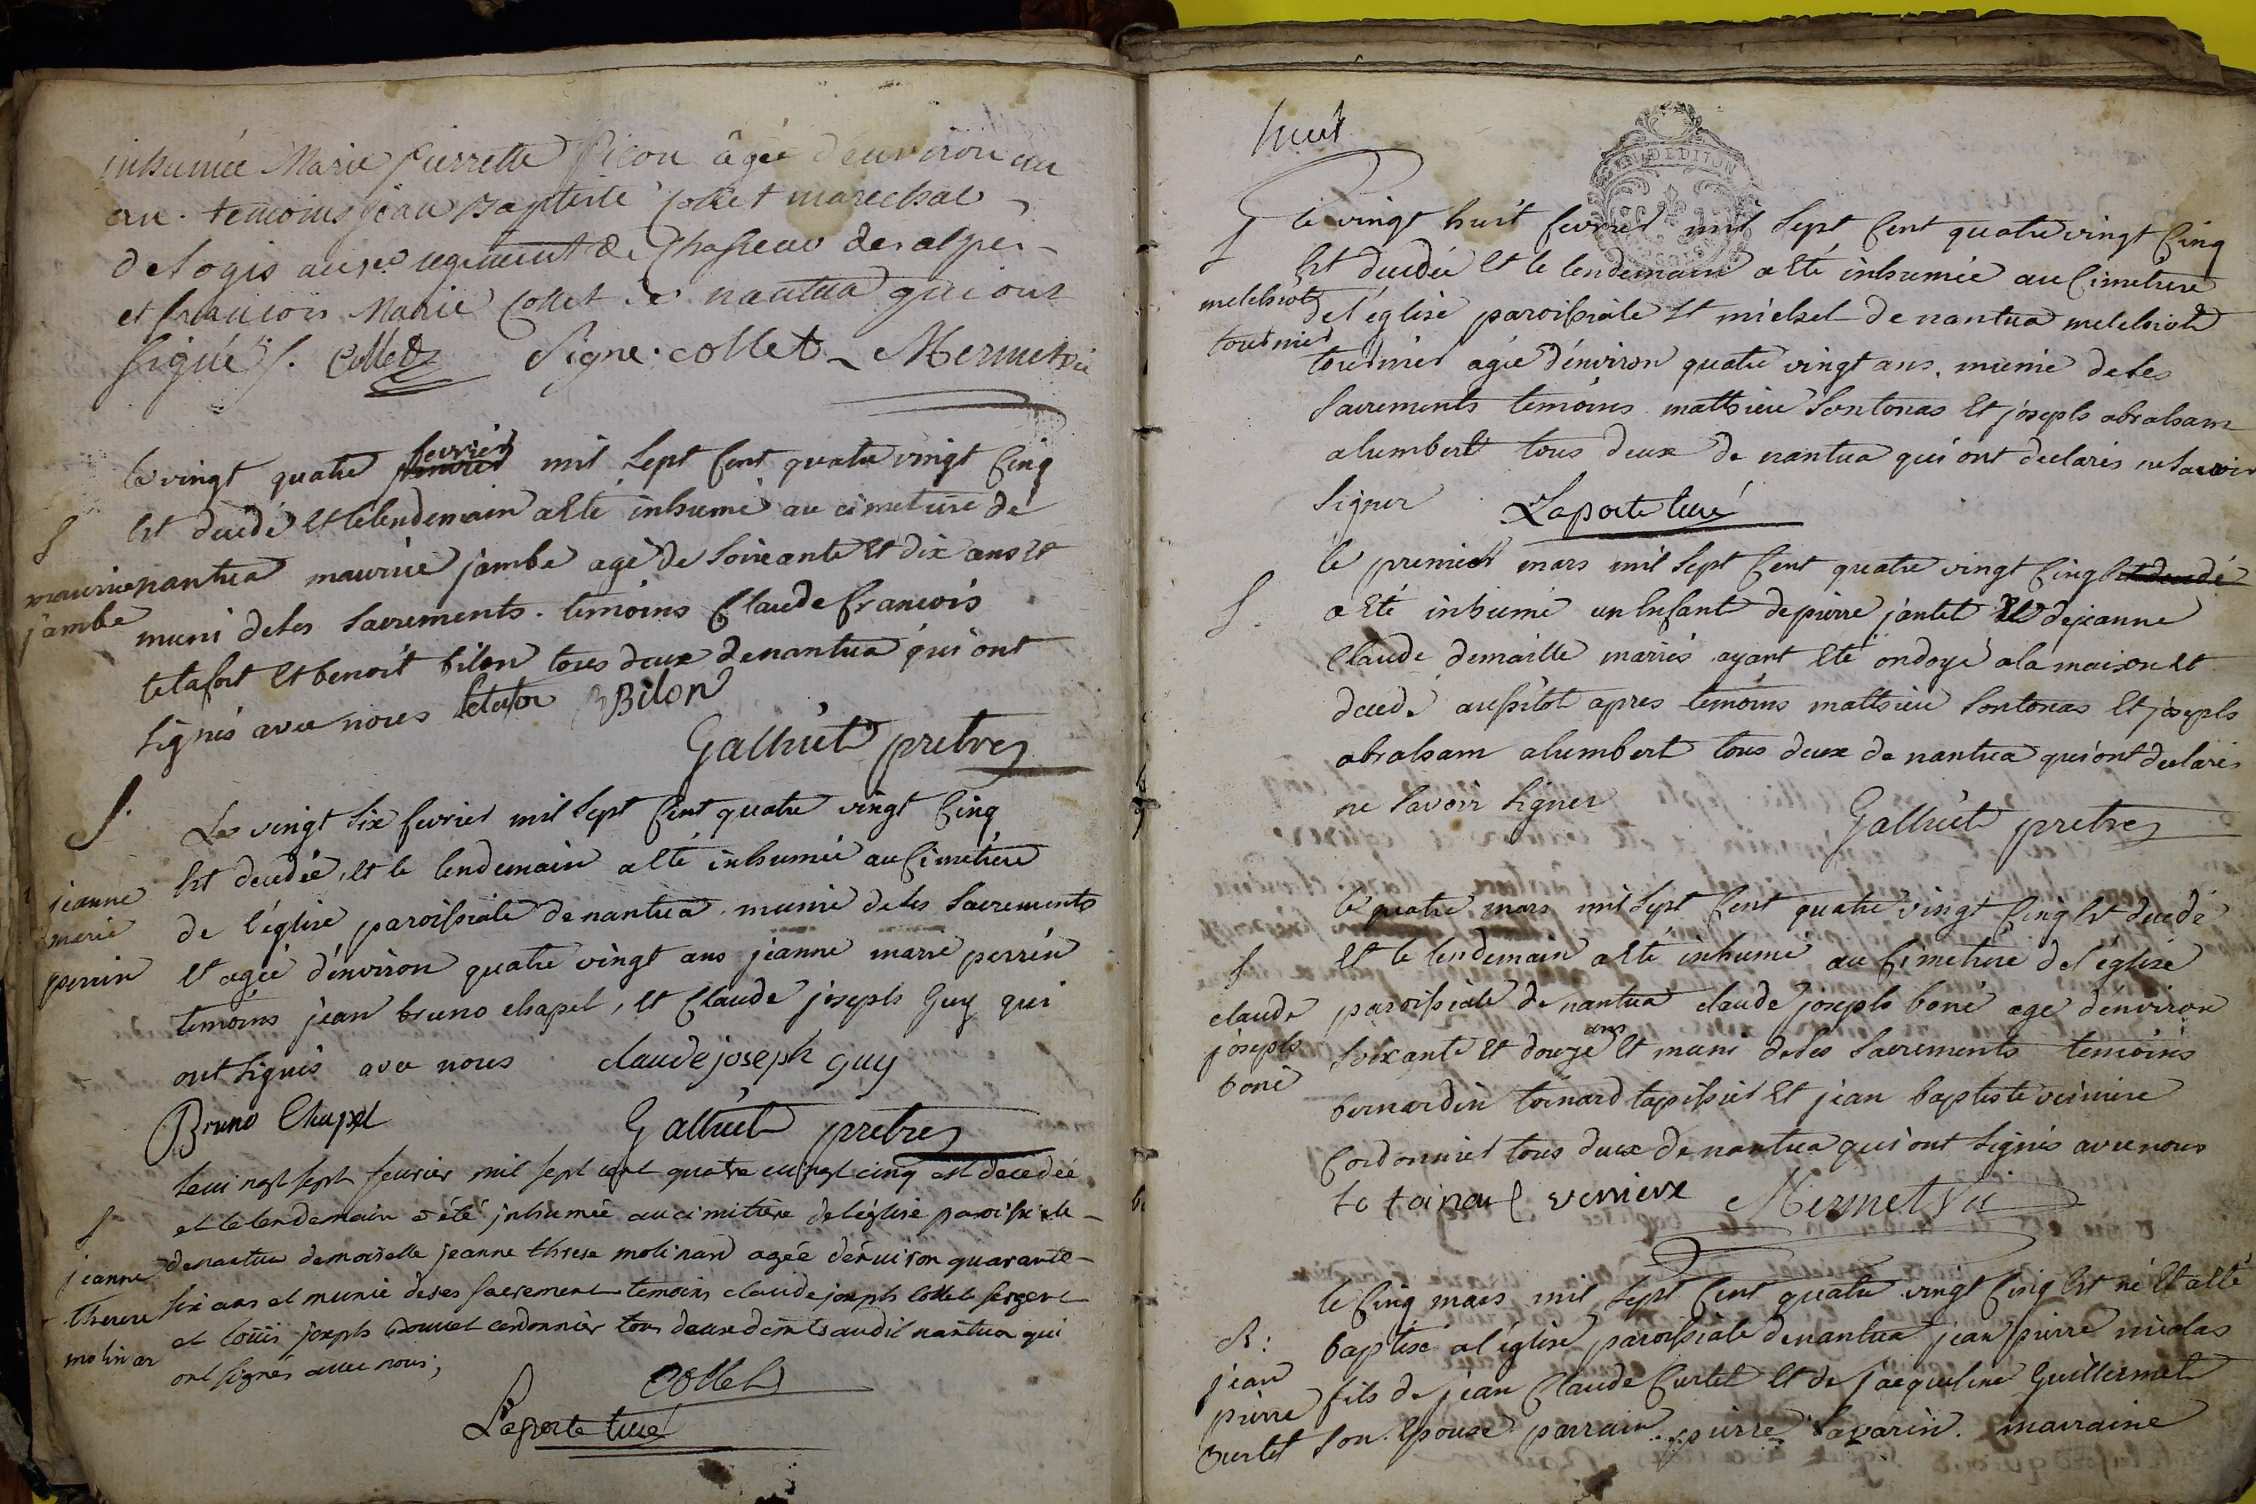 inhumée Marie Pierrette Picon âgée d'environ un
an. temoins jean Baptiste Collet marechal
de logis au regiment de Chasseur des alpes
et francois Marie Collet de nantua qui ont
signé /. Collet Signe. collet Mermet vic
le vingt quatre fevrier mil sept cent quatre vingt cinq
Est decedé Et le lendemain a Eté inhumé au cimetiere de
nantua maurice jambe agé de soixante Et dix ans Et
muni de ses sacrements. temoins Claude francois
tetafort Et benoit bilon tous deux de nantua qui ont
signés avec nous Bilon
Galhiet pretre
S
maurice
jambe
S.
Le vingt six fevrier mil sept cent quatre vingt cinq
Est decedée, Et le lendemain a Eté inhumée au cimetiere
de l'église paroissiale de nantua. munie de ses sacrements
Et agée d'environ quatre vingt ans jeanne marie perrin
temoins jean bruno chapel, Et Claude joseph Guy qui
ont signés avec nous claude joseph guy
Bruno Chapel Galhiet pretre
jeanne
marie
perrin
le vingt sept fevrier mil sept cent quatre vingt cinq est decedée
et le lendemain a été inhumée au cimitiere de l'église paroissiale
de nantua demoiselle jeanne threse molinard agée d'enuiron quarante
six ans et munie de ses sacrement temoins claude joseph collet sergent
et louis joseph cordonnier tous deux audit nantua qui
ont signés avec nous;
collet
Laporte curé
S
jeanne
therese
molinar
huit
le vingt huit fevrier mil sept cent quatre vingt cinq
Est decedée Et le lendemain a Eté inhumée au cimetiere
de l'église paroissiale St michel de nantua melchiote
tournier agée d'environ quatre vingt ans. munie de ses
sacrements temoins matthieu sontonas Et joseph abraham
alumbert tous deux de nantua qui ont declarés ne savoir
signer Laporte curé
S
melchiote
tournier
le premier mars mil sept cent quatre vingt cinq est decedé
a Eté inhumé un Enfant de pierre jantet Et de jeanne
Claude demaille mariés ayant Eté ondoyé a la maison Et
decedé aussitôt apres temoins matthieu sontonas Et joseph
abraham alumbert tous deux de nantua qui ont declarés
ne savoir signer Galhiet pretre
S.
le quatre mars mil sept cent quatre vingt cinq Est decedé
Et le lendemain a Eté inhumé au cimetiere de l'église
paroissiale de nantua claude joseph boné agé d'environ
soixante Et douze ans Et muni de ses sacrements temoins
bernardin toinard tapissier Et jean baptiste verniere
Cordonnier tous deux de nantua qui ont signés avec nous
toinard verniere Mermet vic
S
claude
joseph
boné
le cinq mars mil sept cent quatre vingt cinq Est né Et a Eté
baptisé a l'église paroissiale de nantua jean pierre nicolas
fils de jean Claude Curtet Et de jacqueline Guillermet
son Epouse parrain pierre savarin. marraine
B:
jean
pierre
Curtet